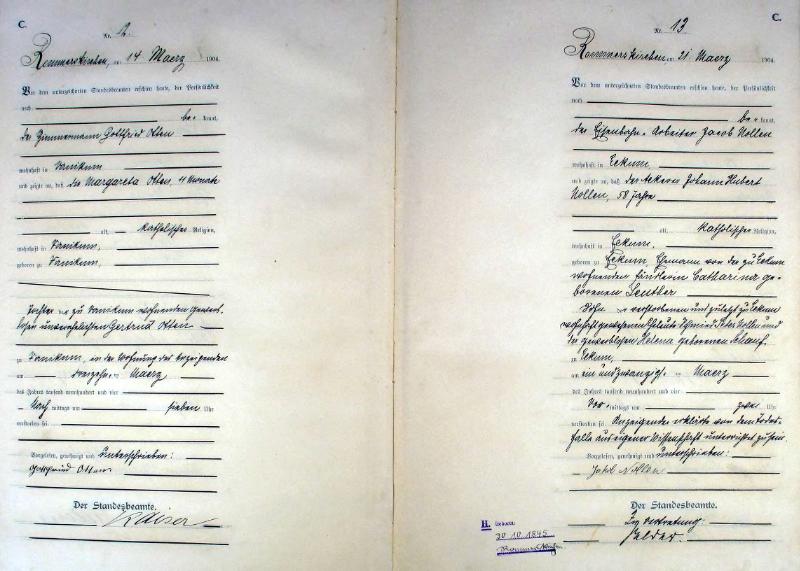 C.
Nr. 12
Rommerskirchen, am 14 Maerz 1904.
Vor dem unterzeichneten Standesbeamten erschien heute, der Persönlichkeit
nach
be kannt,
der Zimmermann Gottfried Otten
wohnhaft in Vanikum
und zeigte an, daß die Margareta Otten, 4 Monate
alt, katholischer Religion,
wohnhaft in Vanikum,
geboren zu Vanikum,
Tochter der zu Vanikum wohnenden gewerb-
losen unverehelichten Gertrud Otten
zu Vanikum, in der Wohnung des Anzeigenden
am dreizehnten Maerz
des Jahres tausend neunhundert und vier
Nach mittags um sieben Uhr
verstorben sei.
Vorgelesen, genehmigt und unterschrieben:
Gottfried Otten
Der Standesbeamte.
C.
Nr. 13
Rommerskirchen am 21 Maerz 1904.
Vor dem unterzeichneten Standesbeamten erschien heute, der Persönlichkeit
nach
be kannt,
der Eisenbahn-Arbeiter Jacob Nollen
wohnhaft in Eckum
und zeigte an, daß der Ackerer Johann Hubert
Nollen, 58 Jahre
alt, katholischer Religion,
wohnhaft in Eckum,
geboren zu Eckum, Ehemann von der zu Eckum
wohnenden Händlerin Catharina ge-
borenen Leuther
Sohn der verstorbenen und zuletzt zu Eckum
wohnhaft gewesenen Eheleute Schmied Peter Nollen und
der gewerblosen Helena geborenen Schauf.
zu Eckum,
am ein und zwanzigsten Maerz
des Jahres tausend neunhundert und vier
Vor mittags um zwei Uhr
verstorben sei. Anzeigender erklärte von dem Todes-
falle aus eigener Wissenschaft unterrichtet zu sein.
Vorgelesen, genehmigt und unterschrieben:
Jakob Nollen
Der Standesbeamte.
In Vertretung:
H. Geboren:
30.10.1845
Rommerskirchen